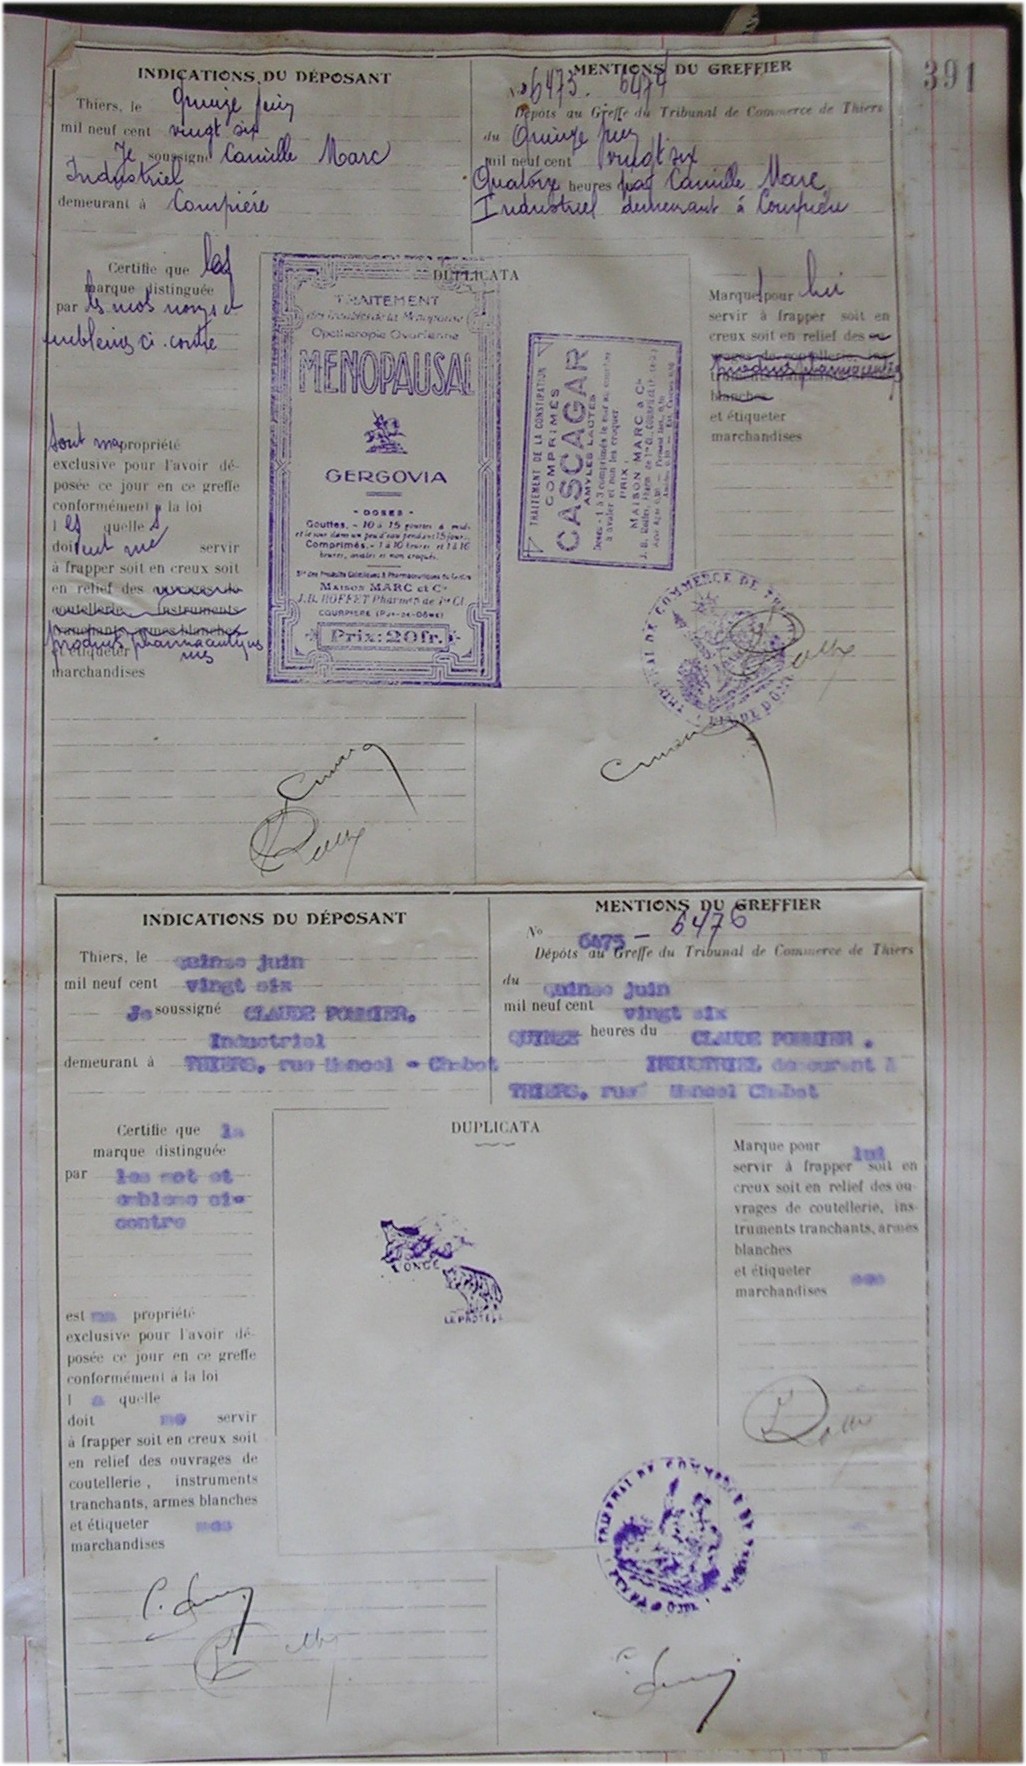 391
INDICATIONS DU DÉPOSANT
Thiers, le quinze juin
mil neuf cent vingt six
Je soussigné Camille Marc
Industriel
demeurant à Courpière
Certifie que les
marque distinguée
par les mots noms et
emblèmes ci-contre
sont ma propriété
exclusive pour l'avoir dé-
posée ce jour en ce greffe
conformément à la loi
les quelles
doivent me servir
à frapper soit en creux soit
en relief des ouvrages de
coutellerie, instruments
tranchants, armes blanches
produits pharmaceutiques
et étiqueter mes
marchandises
MENTIONS DU GREFFIER
No 6473. 6474
Dépôts au Greffe du Tribunal de Commerce de Thiers
du Quinze juin
mil neuf cent vingt six
Quatorze heures par Camille Marc
Industriel demeurant à Courpière
DUPLICATA
TRAITEMENT
des troubles de la Ménopause
Opothérapie Ovarienne
MENOPAUSAL
GERGOVIA
- DOSES -
Gouttes. - 10 à 15 gouttes à midi
et le soir dans un peu d'eau pendant 15 jours.
Comprimés. -
Sté des Produits Chimiques & Pharmaceutiques du Centre
MAISON MARC et Cie
J.B. ROFFET Pharmen de 1re Cl.
COURPIÈRE (Puy-de-Dôme)
Prix: 20fr.
TRAITEMENT DE LA CONSTIPATION
COMPRIMÉS
CASCAGAR
AMYLES LACTÉS
Doses - 1 à 3 comprimés le soir au coucher
à avaler et non les croquer
PRIX:
MAISON MARC & Cie
Marque pour lui
servir à frapper soit en
creux soit en relief des ou-
vrages de coutellerie, ins-
produits pharmaceutiques
blanches
et étiqueter
marchandises
TRIBUNAL DE COMMERCE DE THIERS
PUY DE DÔME
INDICATIONS DU DÉPOSANT
Thiers, le quinze juin
mil neuf cent vingt six
Je soussigné CLAUDE POMMIER,
Industriel
demeurant à THIERS, rue Mancel - Chabot
Certifie que la
marque distinguée
par les mot et
emblème ci-
contre
est ma propriété
exclusive pour l'avoir dé-
posée ce jour en ce greffe
conformément à la loi
l a quelle
doit me servir
à frapper soit en creux soit
en relief des ouvrages de
coutellerie, instruments
tranchants, armes blanches
et étiqueter mes
marchandises
MENTIONS DU GREFFIER
No 6475 - 6476
Dépôts au Greffe du Tribunal de Commerce de Thiers
du quinze juin
mil neuf cent vingt six
QUINZE heures du CLAUDE POMMIER.
INDUSTRIEL demeurant à
THIERS, rue Mancel Chabot
DUPLICATA
L'ONCE
LE PROTÈLE
Marque pour lui
servir à frapper soit en
creux soit en relief des ou-
vrages de coutellerie, ins-
truments tranchants, armes
blanches
et étiqueter ses
marchandises
TRIBUNAL DE COMMERCE DE THIERS